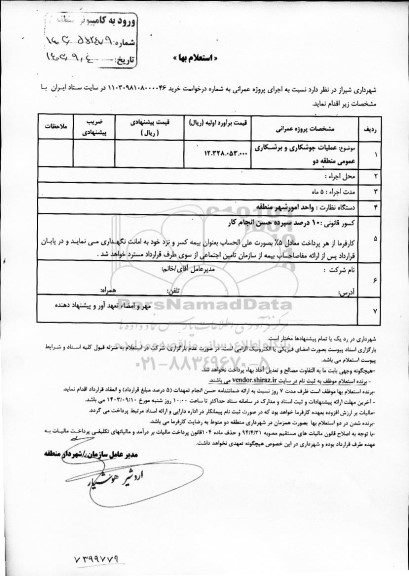 ورود به کامپیوتر منطقه
شماره:
تاریخ:
« استعلام بها »
شهرداری شیراز در نظر دارد نسبت به اجرای پروژه عمرانی به شماره درخواست خرید ۱۱۰۳۰۹۸۱۰۸۰۰۰۰۴۶ در سایت ستاد ایران با
مشخصات زیر اقدام نماید.
ردیف مشخصات پروژه عمرانی قیمت برآورد اولیه (ریال) قیمت پیشنهادی (ریال) ضریب پیشنهادی ملاحظات
۱ موضوع: عملیات جوشکاری و برشکاری عمومی منطقه دو ۱۲،۳۲۸،۰۵۳،۰۰۰
۲ محل اجراء :
۳ مدت اجراء : ۵ ماه
۴ دستگاه نظارت : واحد امورشهر منطقه
کسور قانونی :۱۰ درصد سپرده حسن انجام کار
۵ کارفرما از هر پرداخت معادل ۵٪ بصورت علی الحساب بعنوان بیمه کسر و نزد خود به امانت نگهداری می نمایند و در پایان
قرارداد پس از ارائه مفاصاحساب بیمه از سازمان تامین اجتماعی از سوی طرف قرارداد مسترد خواهد شد .
۶ نام شرکت : مدیرعامل آقای/خانم:
آدرس: تلفن: همراه:
۷ مهر و امضاء تعهد آور و پیشنهاد دهنده
ParsNamadData
۰۲۱-۸۸۳۴۹۶۷۰
شهرداری در رد یک یا تمام پیشنهادها مختار است.
بارگزاری اسناد پیوست بصورت امضای فیزیکی یا الکترونیک الزامی است. در صورت عدم بارگزاری، شرکت در استعلام به منزله قبول کلیه اسناد و شرایط
پیوستی خواهد بود.
-هیچگونه وجهی بابت ما به التفاوت مصالح و تعدیل آحاد بهاء پرداخت نخواهد شد.
- برنده استعلام موظف به ثبت نام در سایت vendor.shiraz.ir می باشد.
-برنده استعلام بها موظف است ظرف مدت ۷ روز نسبت به ارائه ضمانتنامه حسن انجام تعهدات (۵ درصد مبلغ قرارداد) و انعقاد قرارداد اقدام نماید.
- آخرین مهلت ارائه پیشنهادات و ثبت اسناد و مدارک در سامانه ستاد حداکثر تا ساعت ۱۰:۰۰ روز شنبه مورخ ۱۴۰۳/۰۹/۱۰ خواهد بود.
-مالیات بر ارزش افزوده بعهده کارفرما خواهد بود که در صورت ثبت نام پیمانکار در اداره دارایی و ارائه اسناد مرتبط پرداخت می گردد.
-برنده شدن در دو استعلام بها بصورت همزمان در شهرداری منطقه دو منوط به رضایت کارفرما می باشد.
-با توجه به اصلاح قانون مالیات های مستقیم مصوبه ۹۴/۴/۳۱ و حذف ماده ۱۰۴ قانون پرداخت مالیات بر درآمد و مالیاتهای تکلیفی پرداخت مالیات به
عهده طرف قرارداد بوده و شهرداری در این خصوص هیچگونه تعهدی نخواهد داشت.
مدیر عامل سازمان/شهردار منطقه
اردشیر هوشیار
۷۳۹۹۷۷۹